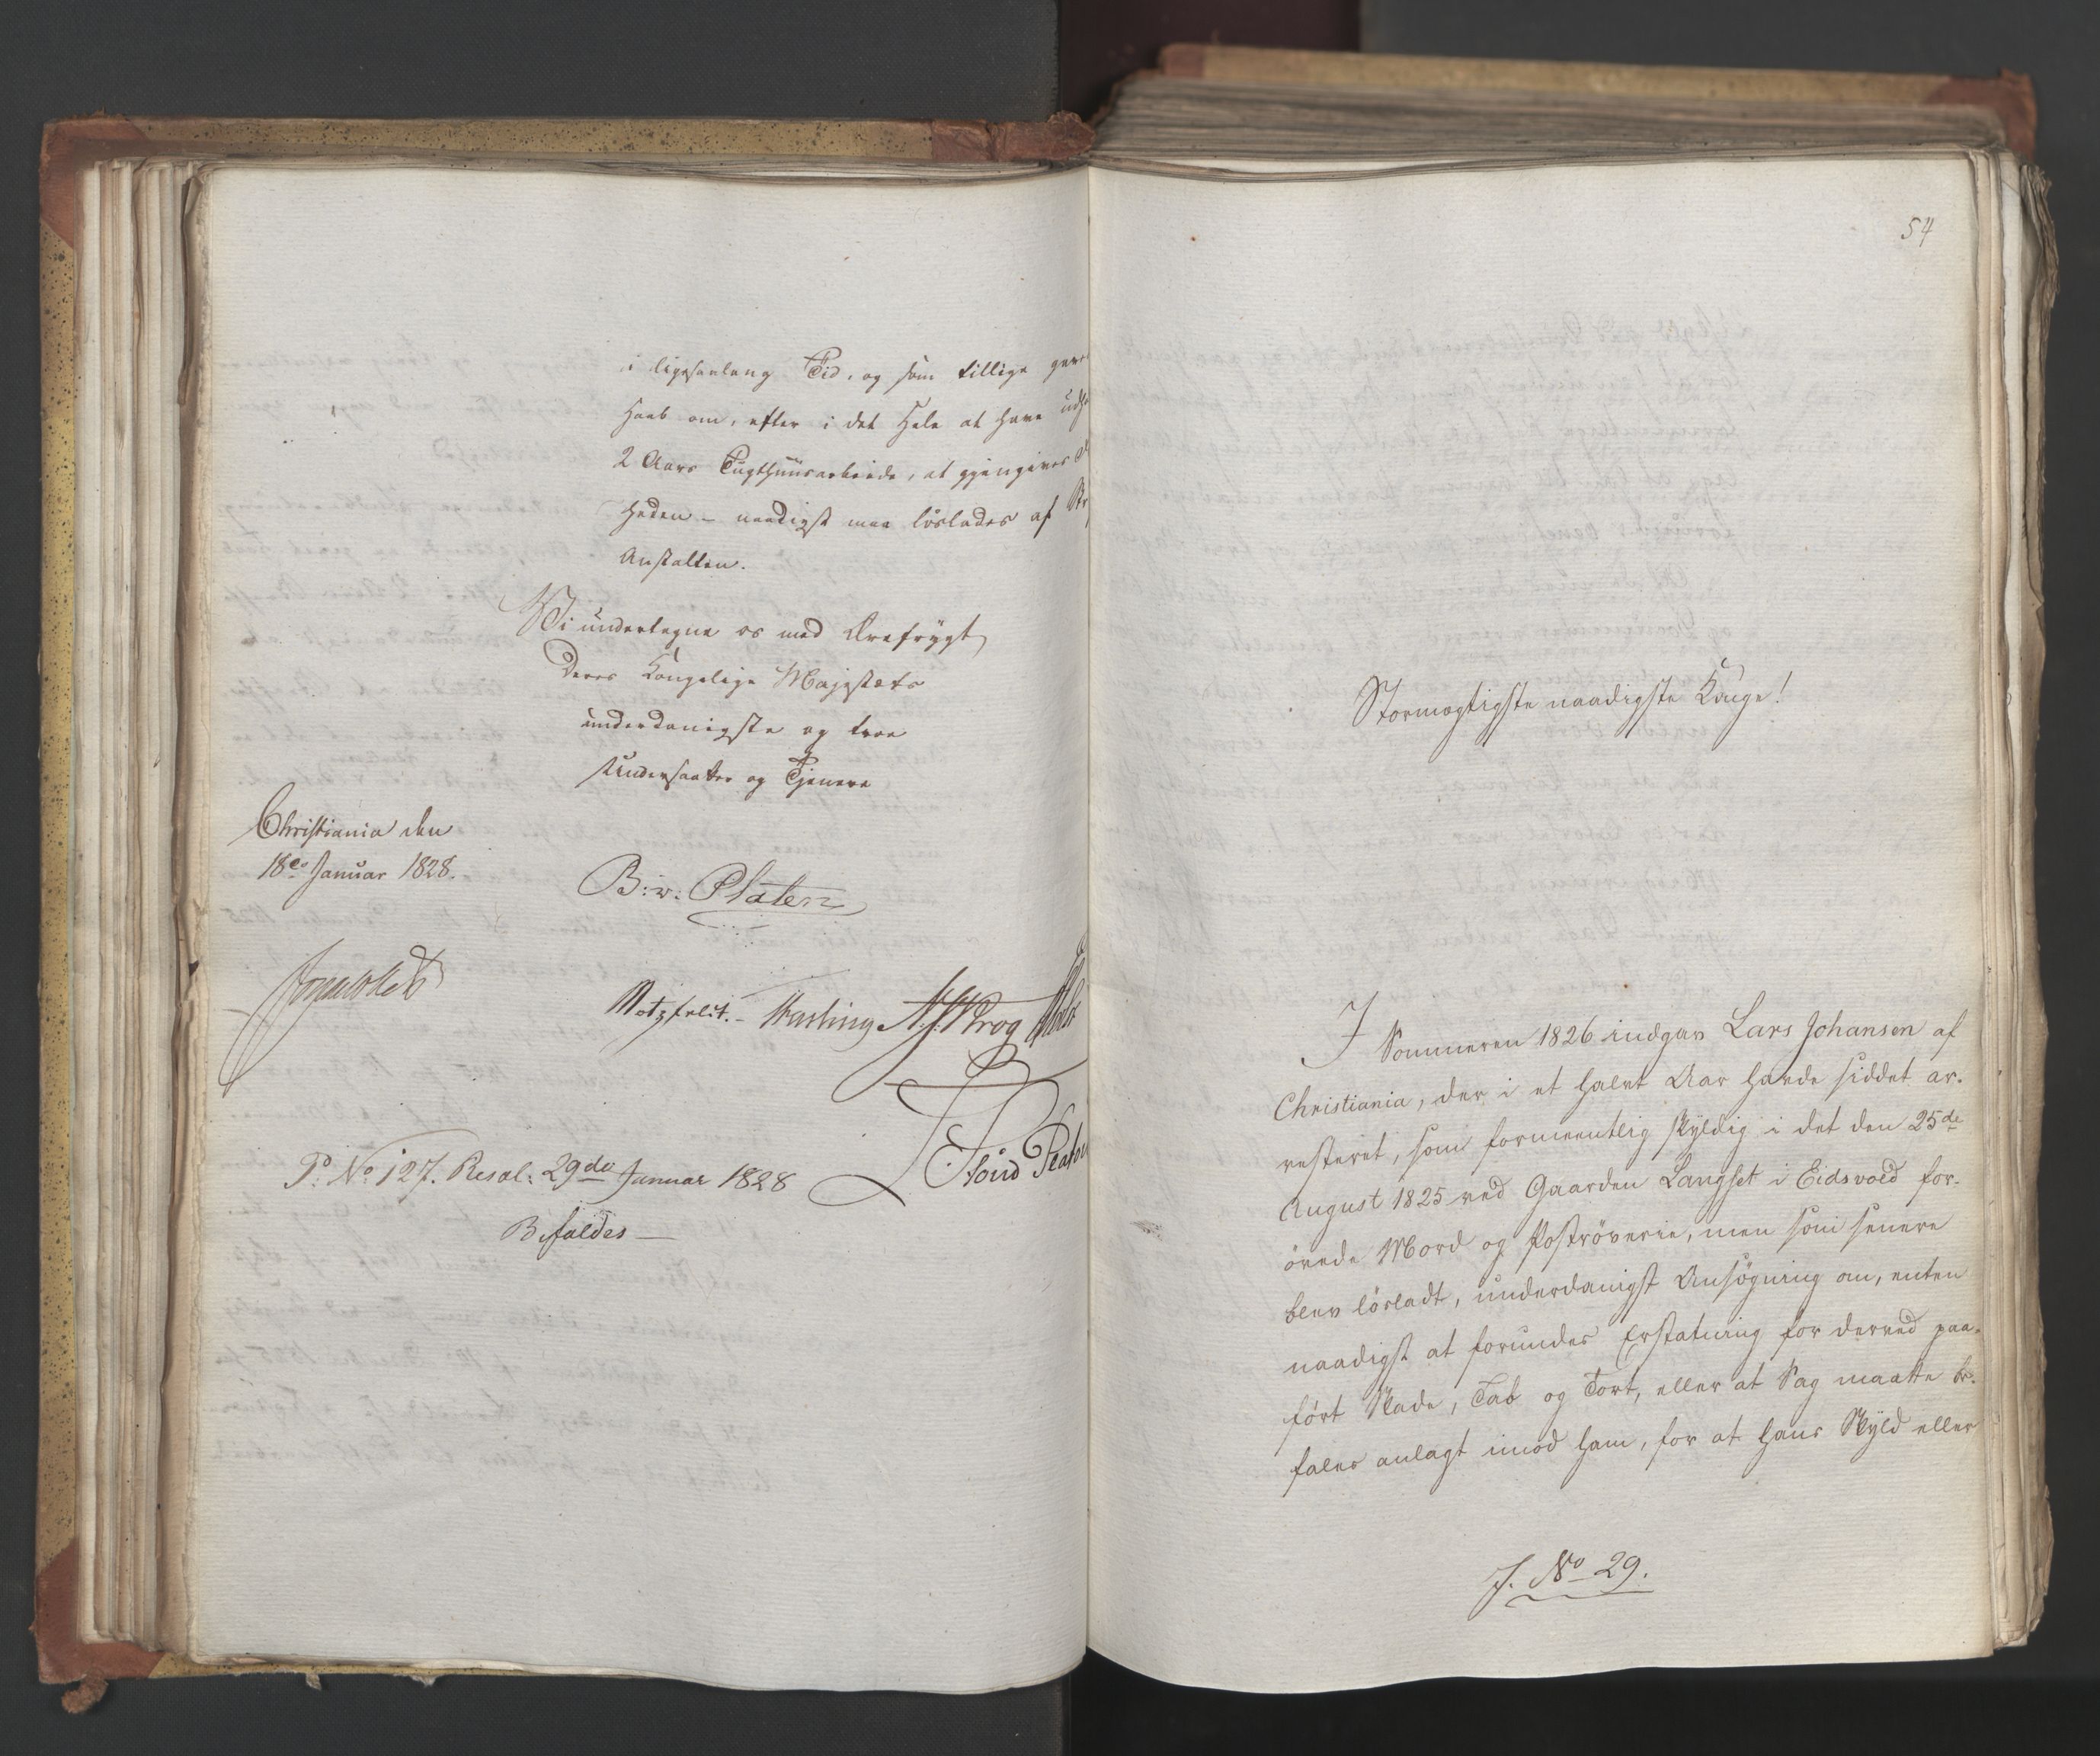 i ligesaalang Tid, og som tillige gives
Haab om, efter i det Hele at have
2 Aars Tugthuusarbeide, at gjengives
heden – naadigst maa løslades af
Anstalten.
Vi undertegne os med Ærefrygt
Deres Kongelige Majestæts
underdanigste og troe
Undersaatter og Tjenere
Christiania den
18de Januar 1828.
B: v: Platen
Motzfeldt. – Fasting
P. No 127. Resol: 29de Januar 1828
Bifaldes –
54
Stormægtigste naadigste Konge!
I Sommeren 1826 indgav Lars Johansen af
Christiania, der i et halvt Aar havde siddet ar-
resteret, som formeentlig skyldig i det den 25de
August 1825 ved Gaarden Langset i Eidsvold for-
øvede Mord og Postrøverie, men som senere
blev løsladt, underdanigst Ansøgning om, enten
naadigst at forundes Erstatning for derved paa-
ført Skade, Tab og Tort, eller at Sag maatte be-
fales anlagt imod ham, for at hans Skyld eller
J. No 29.